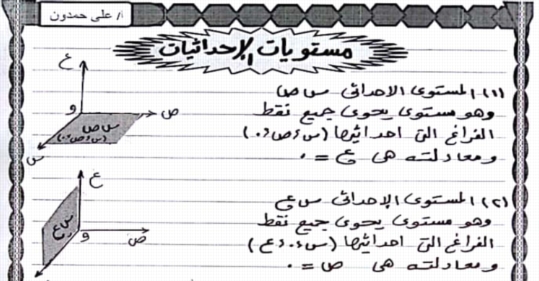 أ/ على حمدون
مستويات الإحداثيات
(١) المستوى الاحداثى س ص
وهو مستوى يحوى جميع نقط
الفراغ التى احداثيها (س ، ص ، ٠)
ومعادلته هى ع = ٠
ع
ص
و
س
س ص
(س ، ص ، ٠)
(٢) المستوى الإحداثى س ع
وهو مستوى يحوى جميع نقط
الفراغ التى احداثيها (س ، ٠ ، ع)
ومعادلته هى ص = ٠
ع
ص
و
س ع